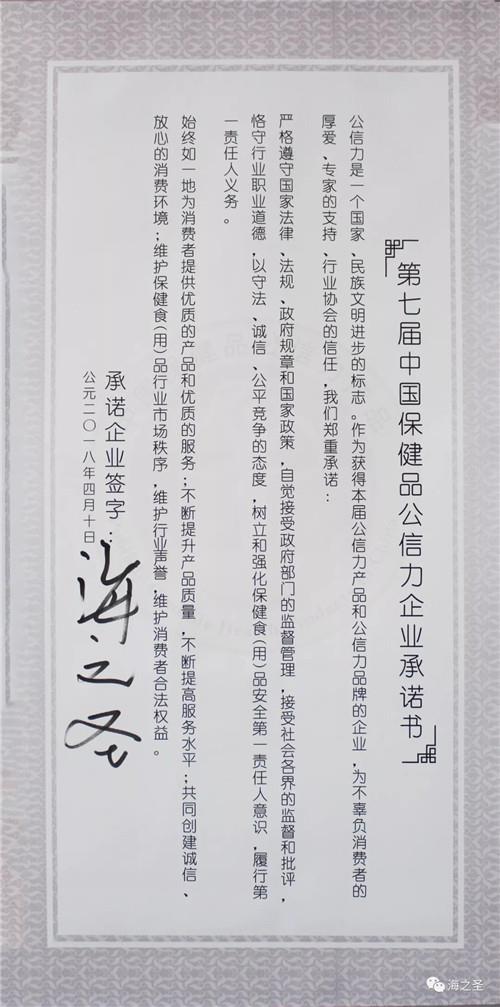 第七届中国保健品公信力企业承诺书
公信力是一个国家、民族文明进步的标志。作为获得本届公信力产品和公信力品牌的企业，为不辜负消费者的
厚爱、专家的支持、行业协会的信任，我们郑重承诺：
严格遵守国家法律、法规、政府规章和国家政策，自觉接受政府部门的监督管理，接受社会各界的监督和批评，
恪守行业职业道德，以守法、诚信、公平竞争的态度，树立和强化保健食（用）品安全第一责任人意识，履行第
一责任人义务。
始终如一地为消费者提供优质的产品和优质的服务；不断提升产品质量，不断提高服务水平；共同创建诚信、
放心的消费环境；维护保健食（用）品行业市场秩序，维护行业声誉，维护消费者合法权益。
承诺企业签字：
海之圣
公元二〇一八年四月十日
海之圣